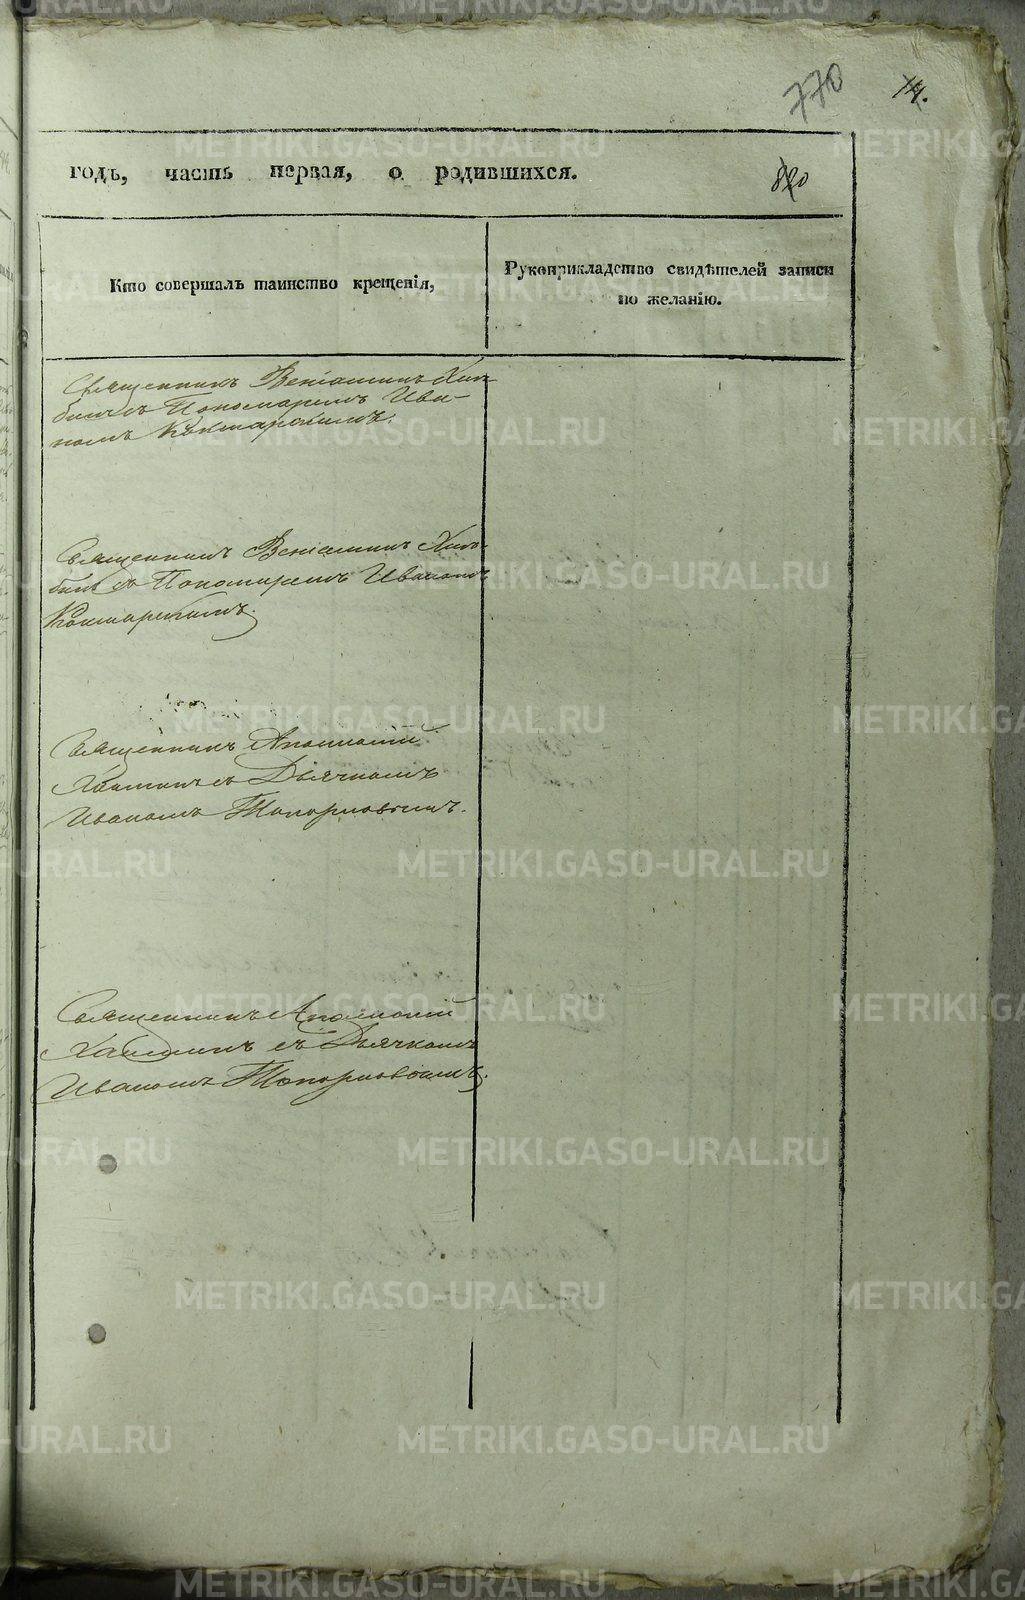 770
14.
годъ, часть первая, о родившихся.
820
Кто совершалъ таинство крещенія,
Рукоприкладство свидѣтелей записи
по желанію.
Священникъ Веніаминъ Хлы-
бинъ съ Пономаремъ Ива-
номъ
Священникъ Веніаминъ Хлы-
бинъ съ Пономаремъ Иваномъ
Священникъ Аполлоній
съ Дьячкомъ
Иваномъ Топорковымъ.
Священникъ Аполлоній
съ Дьячкомъ
Иваномъ Топорковымъ.
METRIKI.GASO-URAL.RU